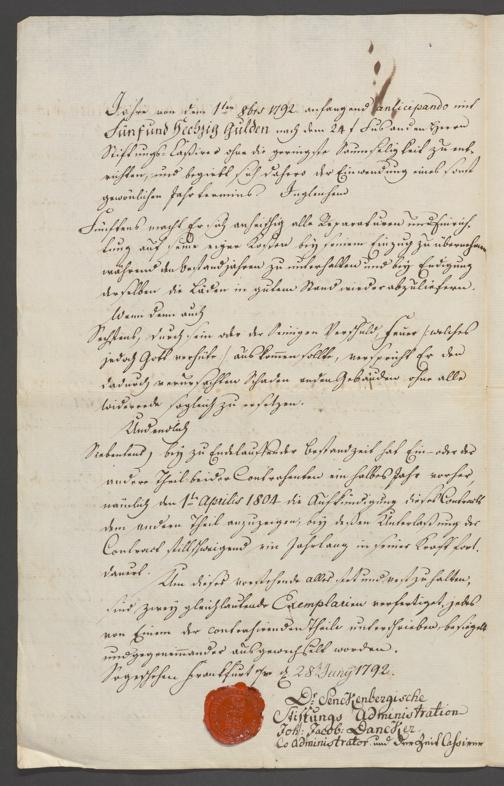 Jahre von dem 1ten 8bris 1792 anfangend anticipando mit
Fünf und Sechzig Gulden nach dem 24 f Fus an den Herrn
Stiftungs Cassirer ohne die geringste Saumseligkeit zu ent-
richten, und begiebt sich dahero der Einwendung eines sonst
gewönlichen Jahr termins. Ingleichen
Fünftens macht Er sich anheischig alle Reparaturen und Einrich-
tung auf seine eigne Kosten bey seinem Einzug zu übernehmen
während den bestand jahren zu unterhalten und bey Endigung
derselben die Läden in gutem Stand wieder abzuliefern.
Wenn dann auch
Sechstens, durch sein oder der Seinigen Verschuld, Feuer /: welches
jedoch Gott verhüte :/ auskommen sollte, verspricht Er den
dadurch verursachten Schaden an den Gebäuden ohne alle
wiederrede sogleich zu ersetzen.
Und endlich
Siebentens, bey zu Ende laufender bestandzeit hat Ein- oder der
andere Theil beider Contrahenten ein halbes Jahr vorher,
nämlich den 1ten Aprilis 1804 die Aufkündigung dieses Contracts
dem andern Theil anzuzeigen, bey dessen Unterlassung der
Contract stillschweigend ein Jahr lang in seiner Kraft fort
dauert.
Um dieses vorstehende alles stet und vest zu halten,
sind zwey gleichlautende Exemplarien verfertiget, jedes
von Einem der contrahirenden Theile unterschrieben, besiegelt
und gegeneinander ausgewechselt worden.
So geschehen Frankfurt d. 28t Juny 1792.
Dr. Senckenbergische
Stiftungs Administration
Joh: Jacob: Dancker
Co Administrator und der Zeit Cassirer